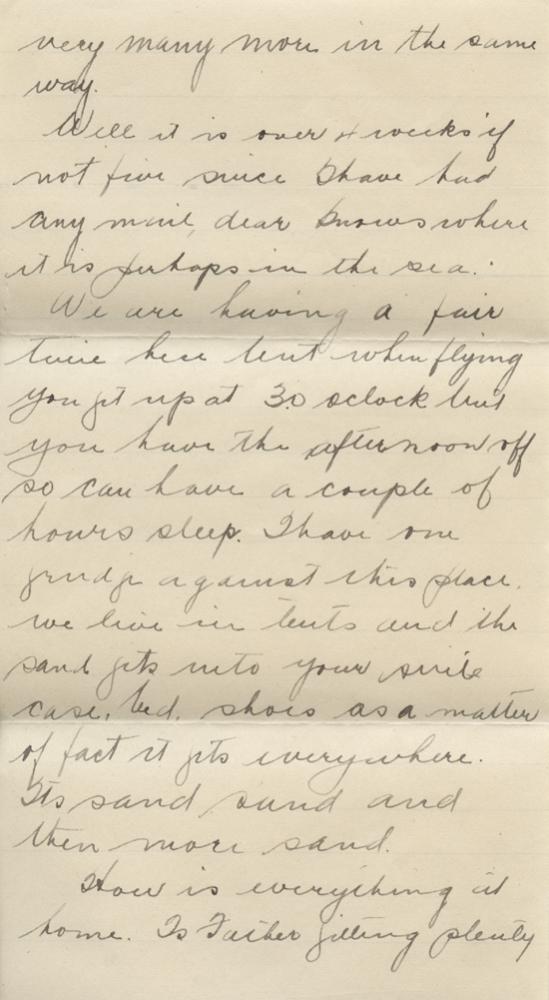 very many more in the same
way.
Well it is over 4 weeks if
not five since I have had
any mail, dear knows where
it is perhaps in the sea.
We are having a fair
time here but when flying
you get up at 3.0 oclock but
you have the afternoon off
so can have a couple of
hours sleep. I have one
grudge against this place.
we live in tents and the
sand gets into your suite
case, bed, shoes as a matter
of fact it gets everywhere.
Its sand sand and
then more sand.
How is everything at
home. Is Father getting plenty